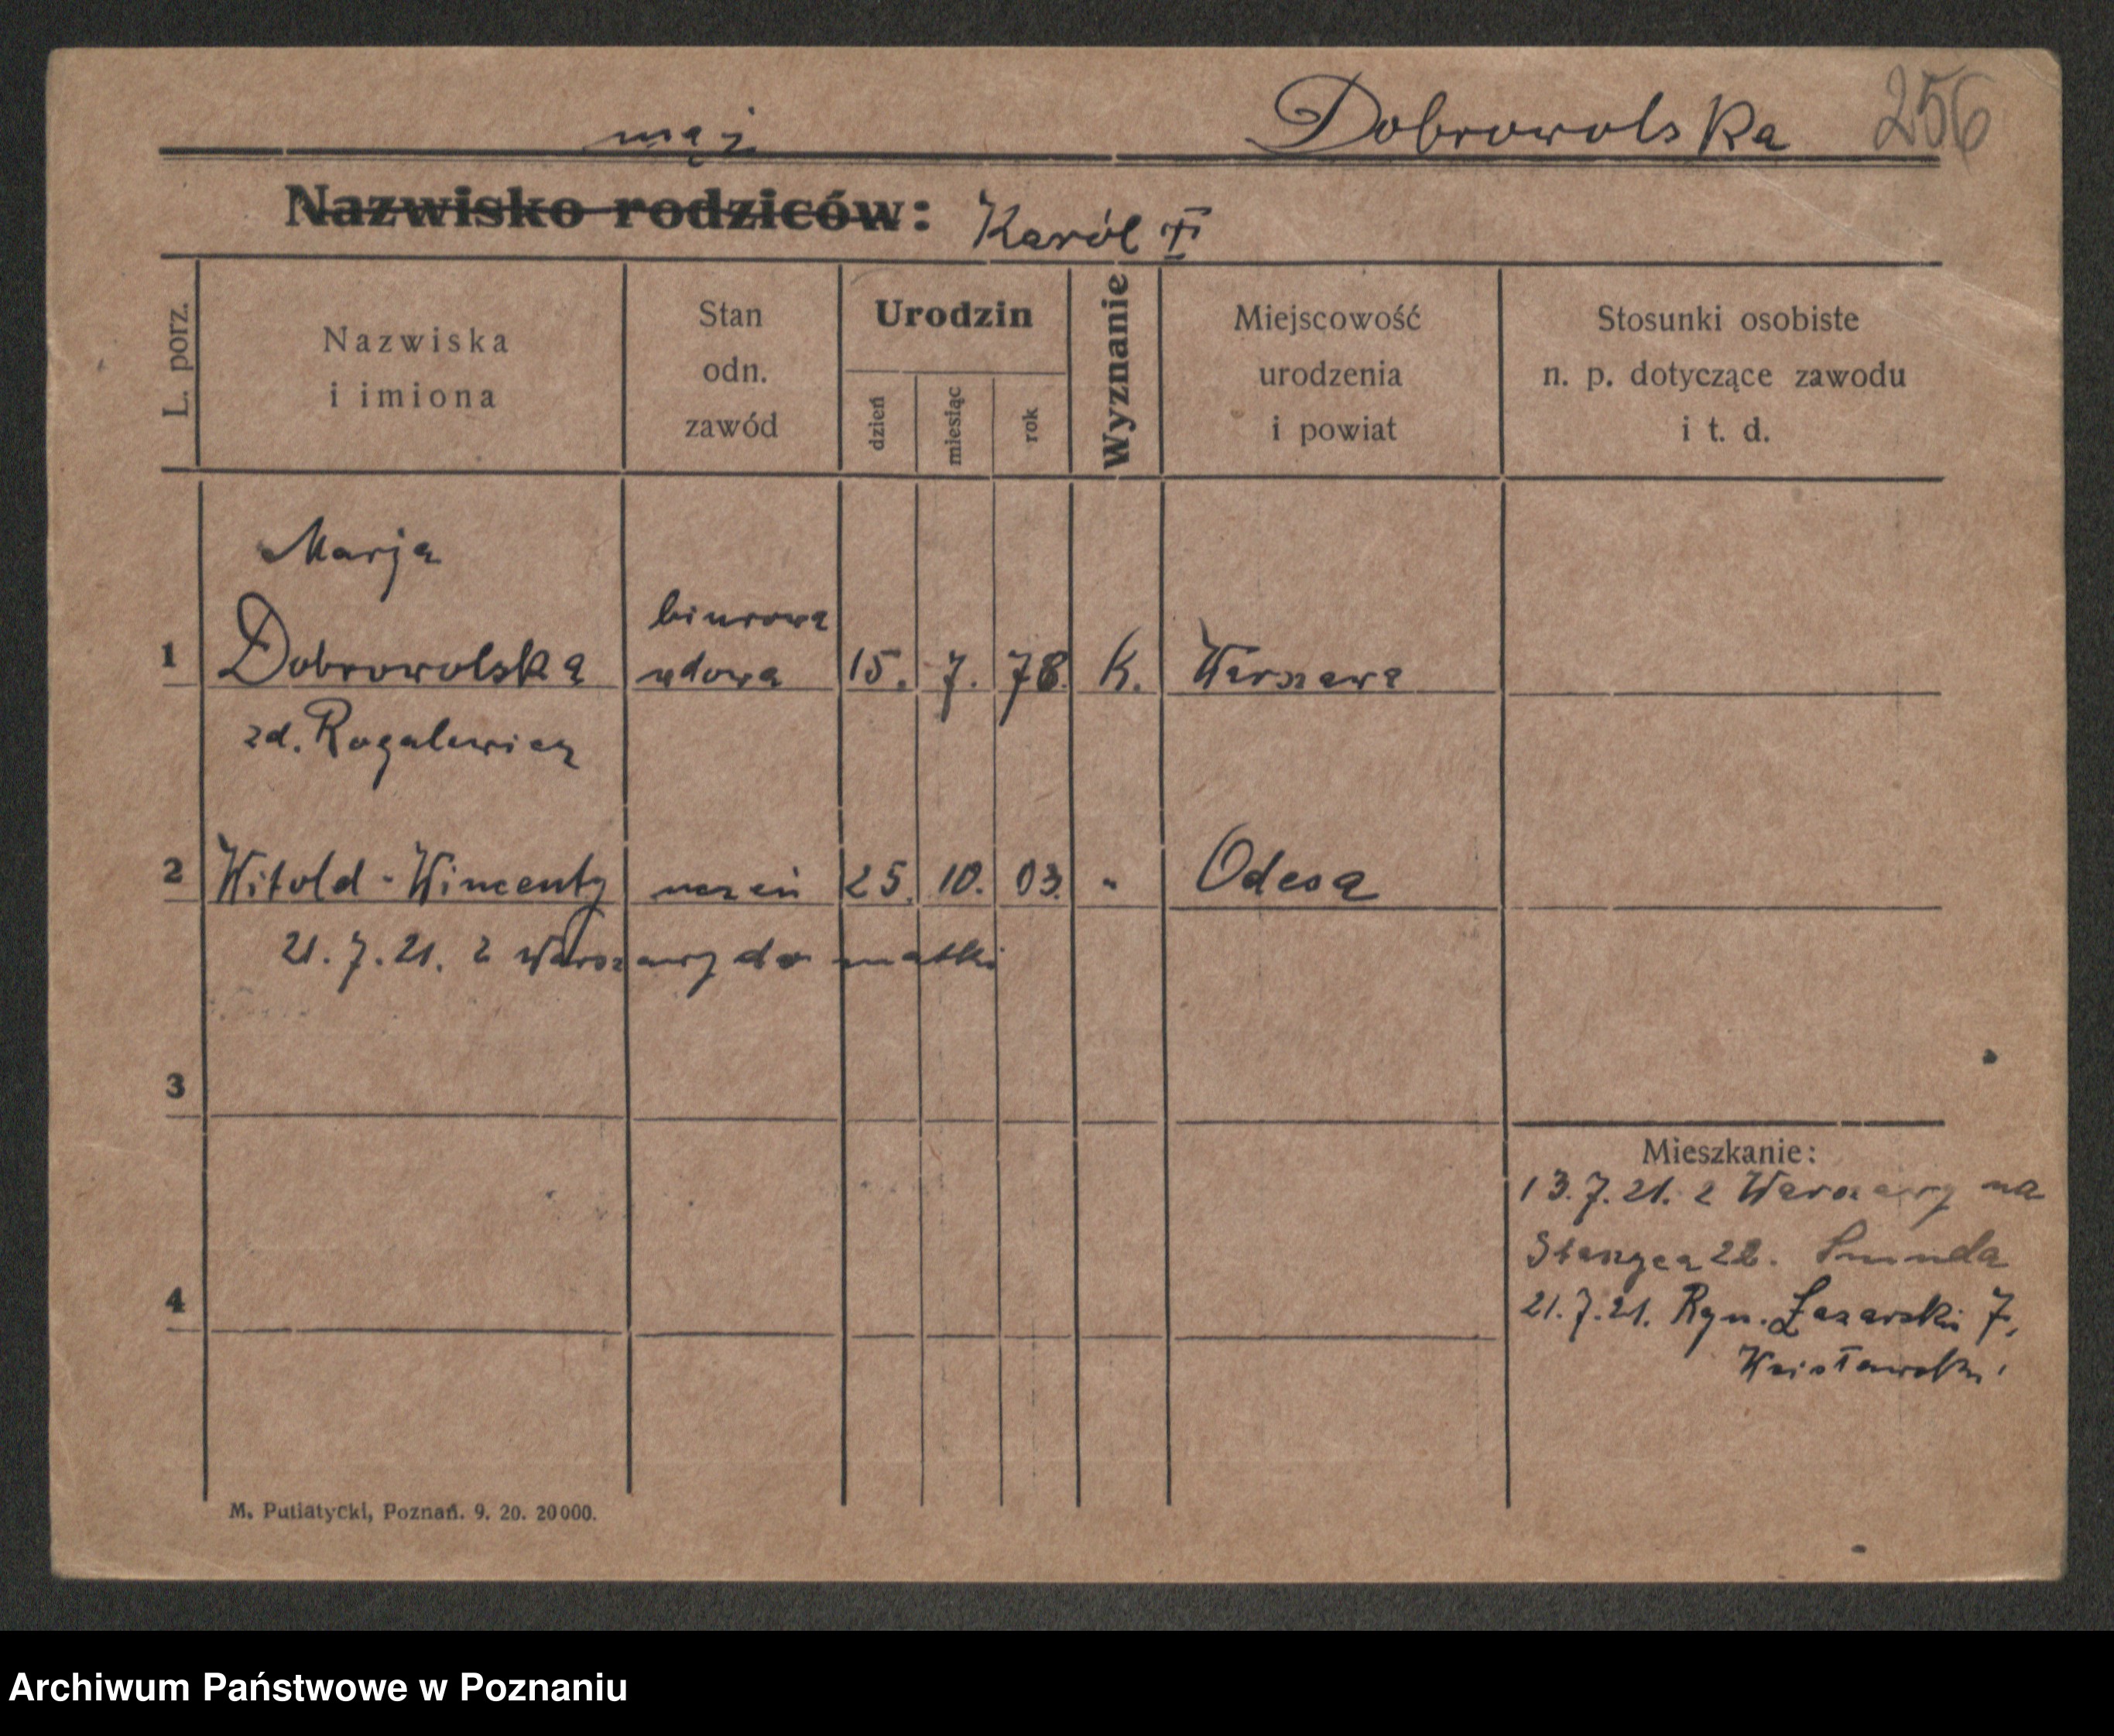 mąż
Dobrowolska 256
Nazwisko rodziców: Karól †
L. porz.
Nazwiska
i imiona
Stan
odn.
zawód
Urodzin
dzień
miesiąc
rok
Wyznanie
Miejscowość
urodzenia
i powiat
Stosunki osobiste
n. p. dotyczące zawodu
i t. d.
Marja
biurowa
1 Dobrowolska wdowa 15. 7. 78. K. Warszawa
zd. Rogalewicz
2 Witold-Wincenty uczeń 25. 10. 03. " Odesa
21.7.21. z Warszawy do matki
3
Mieszkanie:
13.7.21. z Warszawy na
Staszyca 22.
4
21.7.21. Ryn. Łazarski 7,
M. Putiatycki, Poznań. 9. 20. 20000.
Archiwum Państwowe w Poznaniu